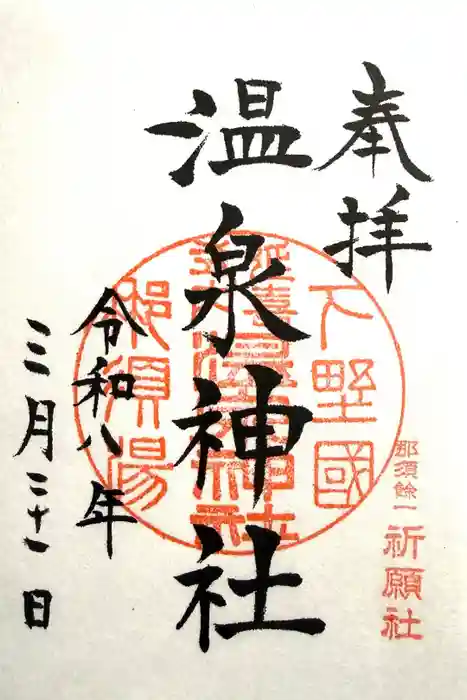 奉拝
温泉神社
令和八年
三月二十一日
下野國
延喜
温泉神社
那須湯
那須餘一
祈願社